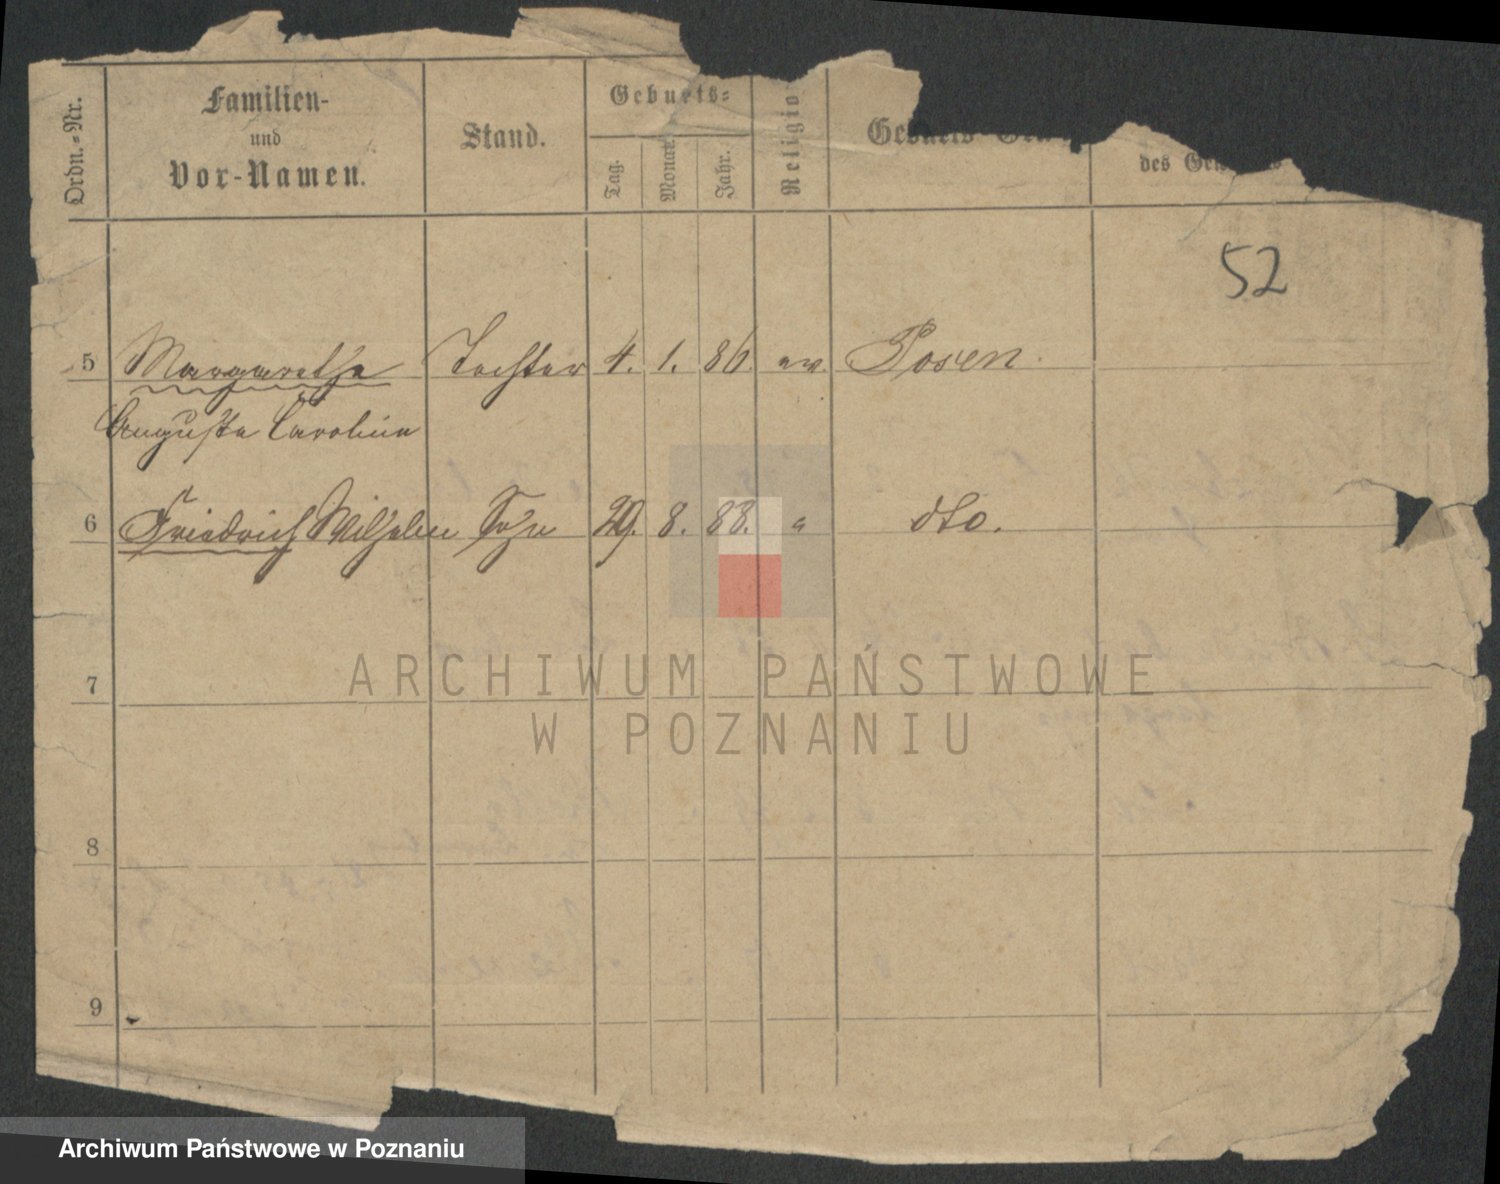 Ordn.-Nr.
Familien-
und
Vor-Namen.
Stand.
Geburts-
Tag.
Monat.
Jahr.
Religio
Geburts-
des
52
5 Margarethe Tochter 4. 1. 86. ev. Posen.
Auguste Caroline
6 Friedrich Wilhelm Sohn 29. 8. 88. " dto.
7
ARCHIWUM PAŃSTWOWE
W POZNANIU
8
9
Archiwum Państwowe w Poznaniu